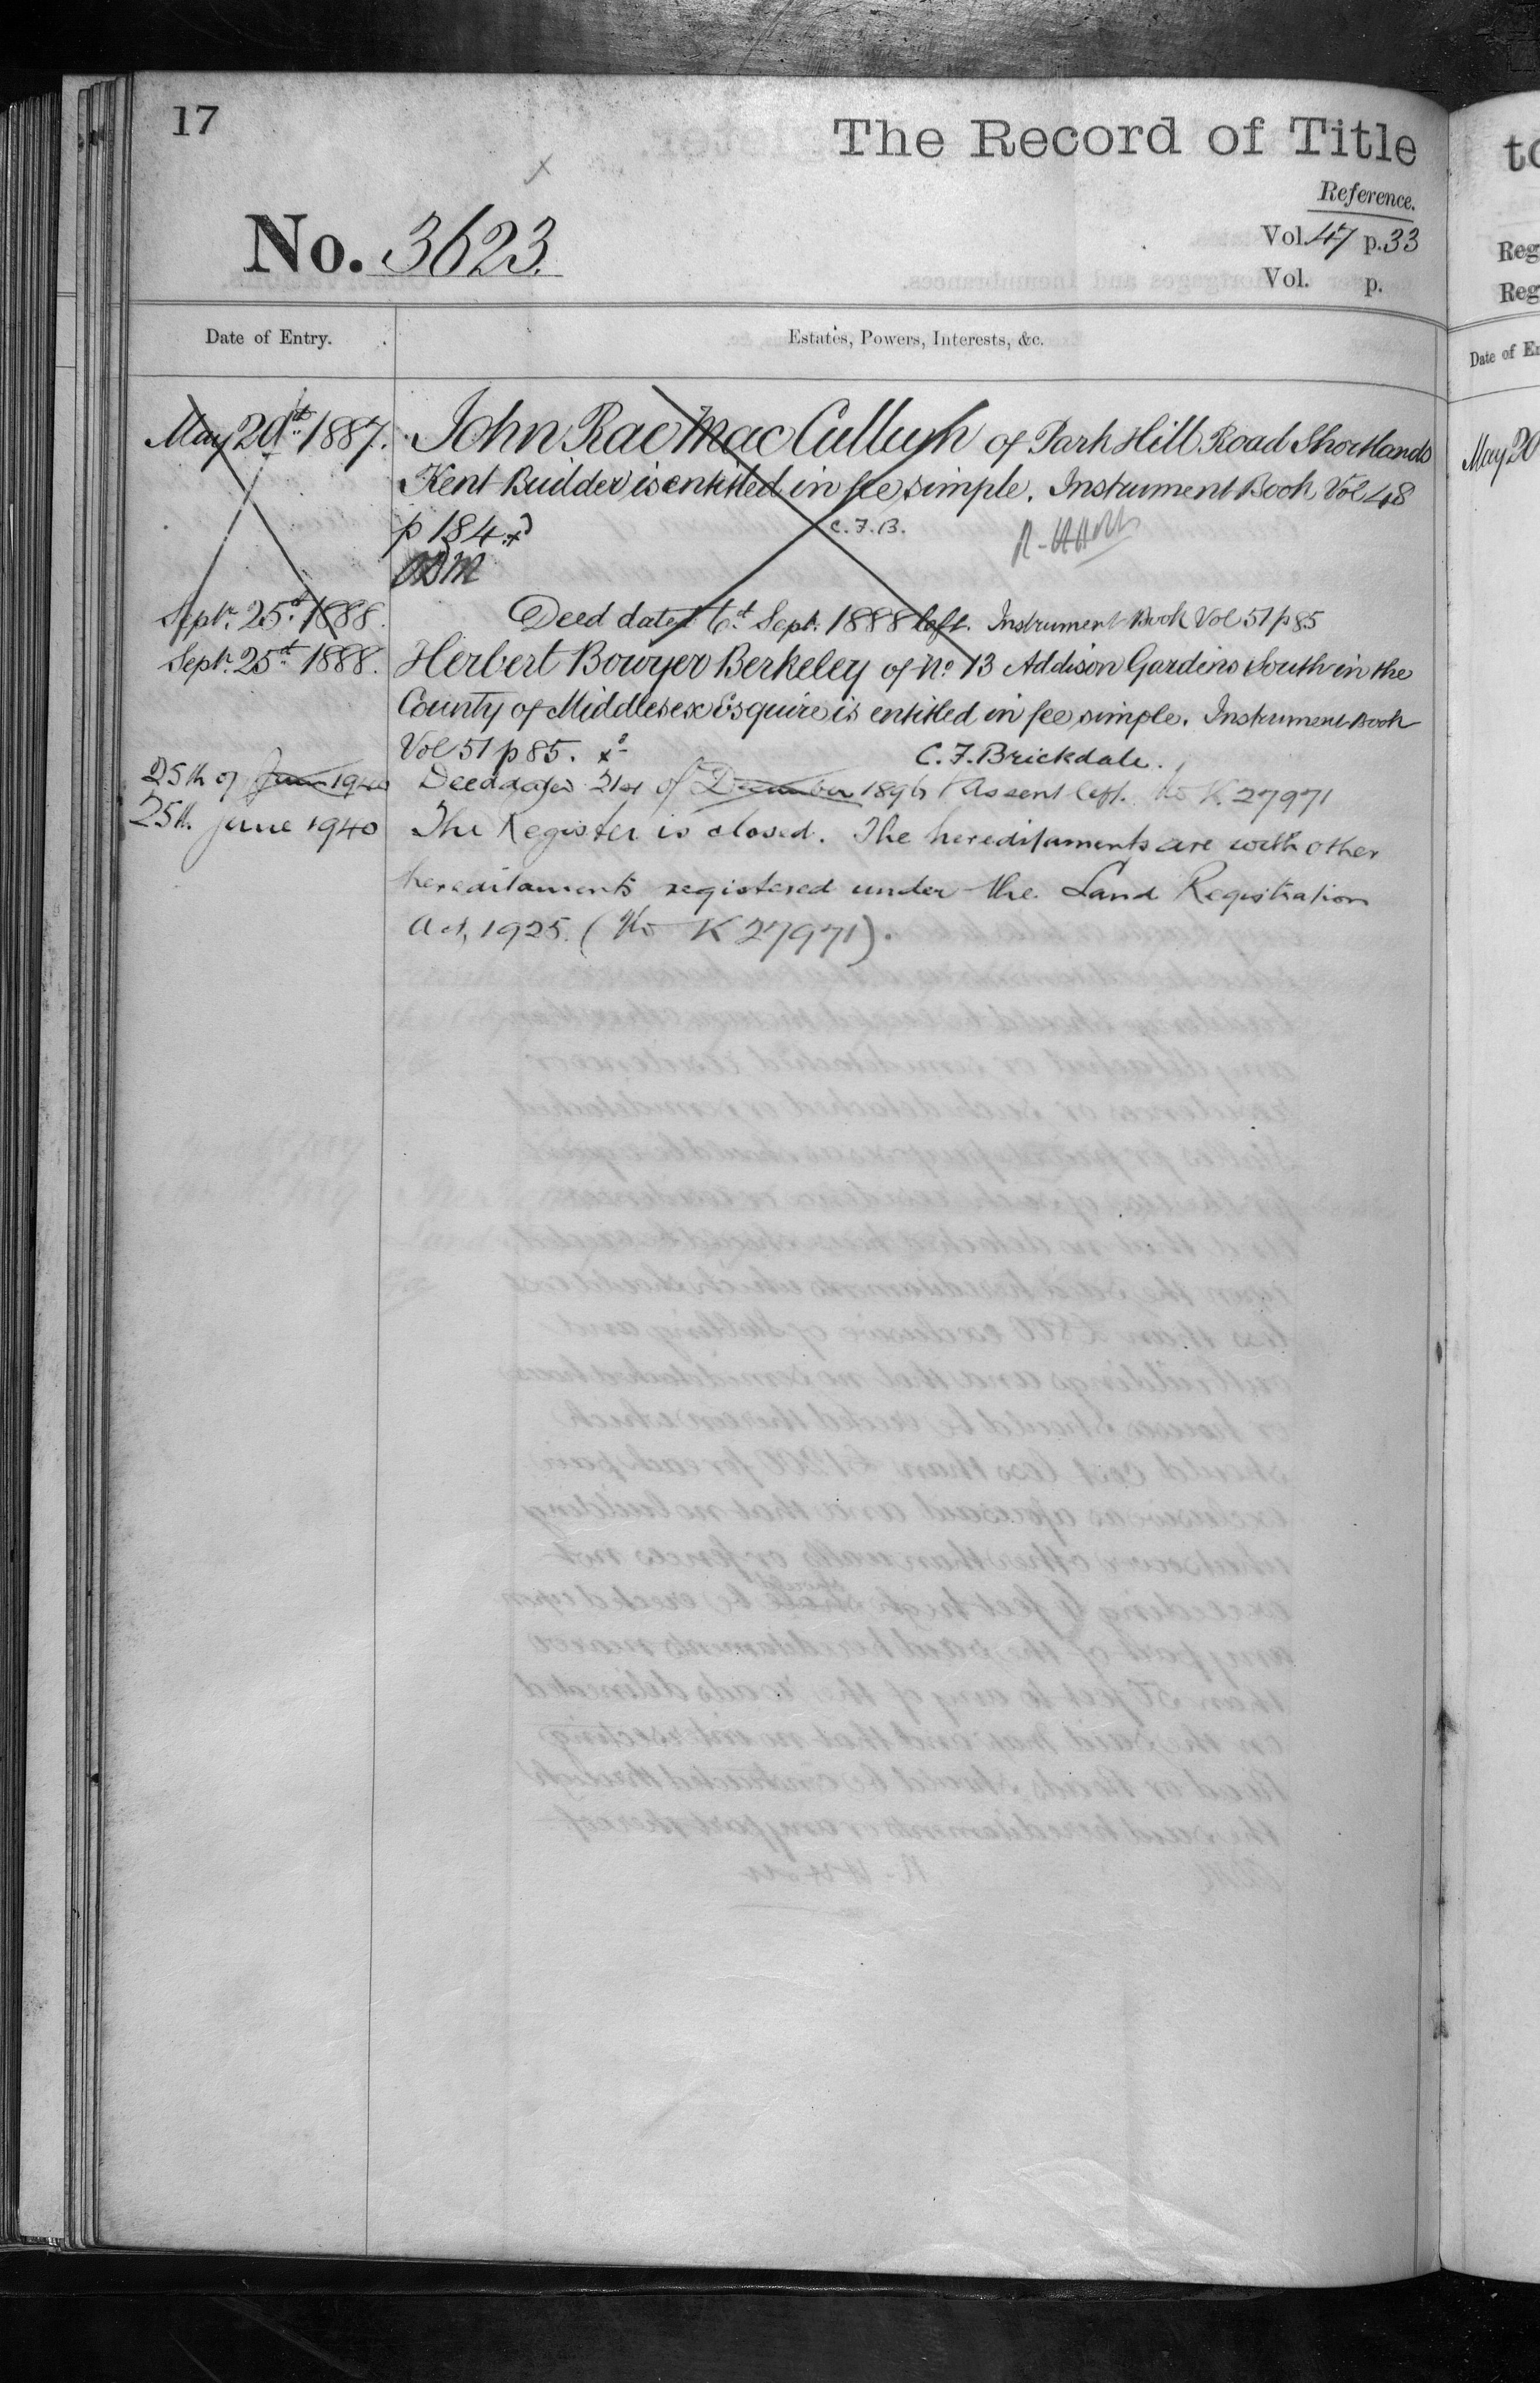 17
The Record of Title
Reference.
No. 3623.
Vol. 47 p. 33
Vol. p.
Date of Entry.
Estates, Powers, Interests, &c.
May 20th 1887. John Rae MacCullugh of Park Hill Road Shortlands
Kent Builder is entitled in fee simple. Instrument Book Vol 48
p 184.
C.F.B.
Sept. 25th 1888. Deed dated 6th Sept. 1888 left. Instrument Book Vol 51 p 85
Sept. 25th 1888. Herbert Bowyer Berkeley of No. 13 Addison Gardens South in the
County of Middlesex Esquire is entitled in fee simple. Instrument Book
Vol 51 p 85. C.F. Brickdale.
25th of June 1940 Deed dated 21st of December 1896 & Assent left. No K.27971
25th June 1940 The Register is closed. The hereditaments are with other
hereditaments registered under the Land Registration
Act, 1925. (No K 27971).
to
Reg
Reg
Date of En
May 20